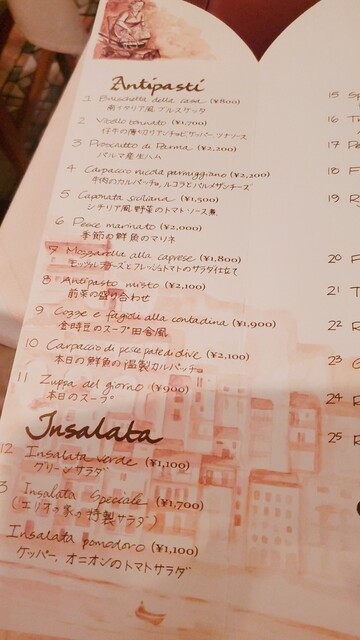 Antipasti
1 Bruschetta della casa (¥800)
南イタリア風 ブルスケッタ
2 Vitello tonnato (¥1,700)
3 Prosciutto di Parma (¥2,200)
パルマ産生ハム
4 Carpaccio rucola parmigiano (¥2,200)
牛肉のカルパッチョ、ルコラとパルメザンチーズ
5 Caponata siciliana (¥1,500)
シチリア風 野菜のトマトソース煮
6 Pesce marinato (¥2,000)
季節の鮮魚のマリネ
7 Mozzarella alla caprese (¥1,800)
モッツァレラチーズとフレッシュトマトのサラダ仕立て
8 Antipasto misto (¥2,100)
前菜の盛り合わせ
9 Cozze e fagioli alla contadina (¥1,900)
金時豆のスープ 田舎風
10 Carpaccio di pesce pate di olive (¥2,100)
本日の鮮魚の温製カルパッチョ
11 Zuppa del giorno (¥900)
本日のスープ
Insalata
12 Insalata verde (¥1,100)
グリーンサラダ
3 Insalata speciale (¥1,700)
(エリオの家の特製サラダ)
Insalata pomodoro (¥1,100)
ケッパー、オニオンのトマトサラダ
15 Sp
16 Tr
17
18 F
19 R
20 F
21 T
22 R
23
24 R
25 R